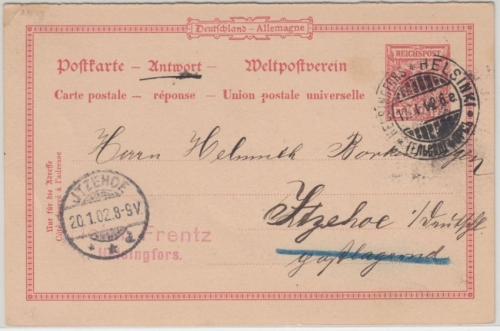 Deutschland – Allemagne
REICHSPOST
Postkarte – Antwort – Weltpostverein
Carte postale – réponse – Union postale universelle
HELSINGFORS * HELSINKI
Nur für die Adresse
Côté réservé à l'adresse
Herrn Helmuth
JTZEHOE
20.1.02.8-9V
Itzehoe / Deutschl.
Frentz
Helsingfors.
postlagernd